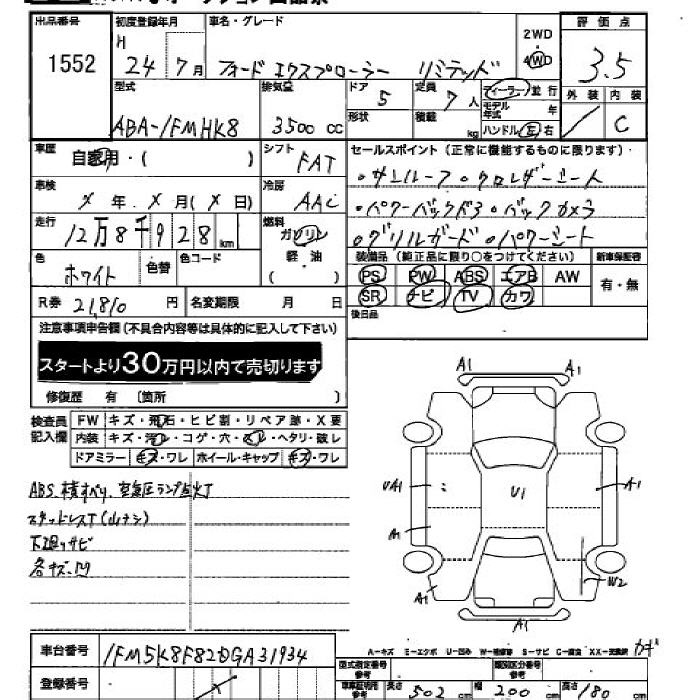 出品番号 初度登録年月 車名・グレード 2WD 評価点
1552 H 24年7月 フォード エクスプローラー リミテッド 4WD 3.5
型式 排気量 ドア 5 定員 7人 ディーラー 並行 外装 内装
ABA-1FMHK8 3500 cc 形状 積載 kg モデル年式 年 ハンドル 左 右 C
車歴 自家用・( ) シフト FAT セールスポイント (正常に機能するものに限ります)
車検 年 月 ( 日) 冷房 AAC ・サンルーフ・クロレザーシート
走行 12万8千928 km 燃料 ガソリン 軽油 ( ) ・パワーバックドア・バックカメラ
・グリルガード・パワーシート
色 ホワイト 色替 色コード 装備品 (純正品に限り○をつけてください) 新車保証書
PS PW ABS エアB AW 有・無
R券 21,810 円 名変期限 月 日 SR ナビ TV カワ
注意事項申告欄 (不具合内容等は具体的に記入して下さい) 後日品
スタートより30万円以内で売切ります
修復歴 有 〔箇所 〕
検査員記入欄 FW キズ・飛石・ヒビ割・リペア跡・X要
内装 キズ・汚レ・コゲ・穴・スレ・ヘタリ・破レ
ドアミラー キズ・ワレ ホイール・キャップ キズ・ワレ
ABS 横すべり、空気圧ランプ点灯
スタッドレスT(山ナシ)
下廻リサビ
各キズ・凹
A1 A1
UA1 U1 A1
A1
A1 W2
U1
A-キズ E-エクボ U-凹み W-補修跡 S-サビ C-腐食 XX-交換済 カギ
車台番号 1FM5K8F82DGA31934 型式指定番号 参考 類別区分番号 参考
登録番号 車庫証明用 参考 長さ 502 cm 幅 200 cm 高さ 180 cm